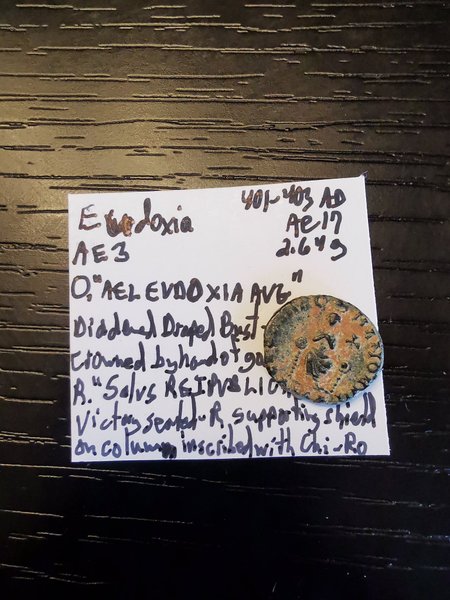 Eudoxia 401-403 AD
AE3 AE17
2.64g
O. "AEL EVDOXIA AVG"
Diademed Draped Bust
Crowned by hand of
R. "Salus REIPVBLIC
Victory seated R. supporting shield
on column, inscribed with Chi-Ro